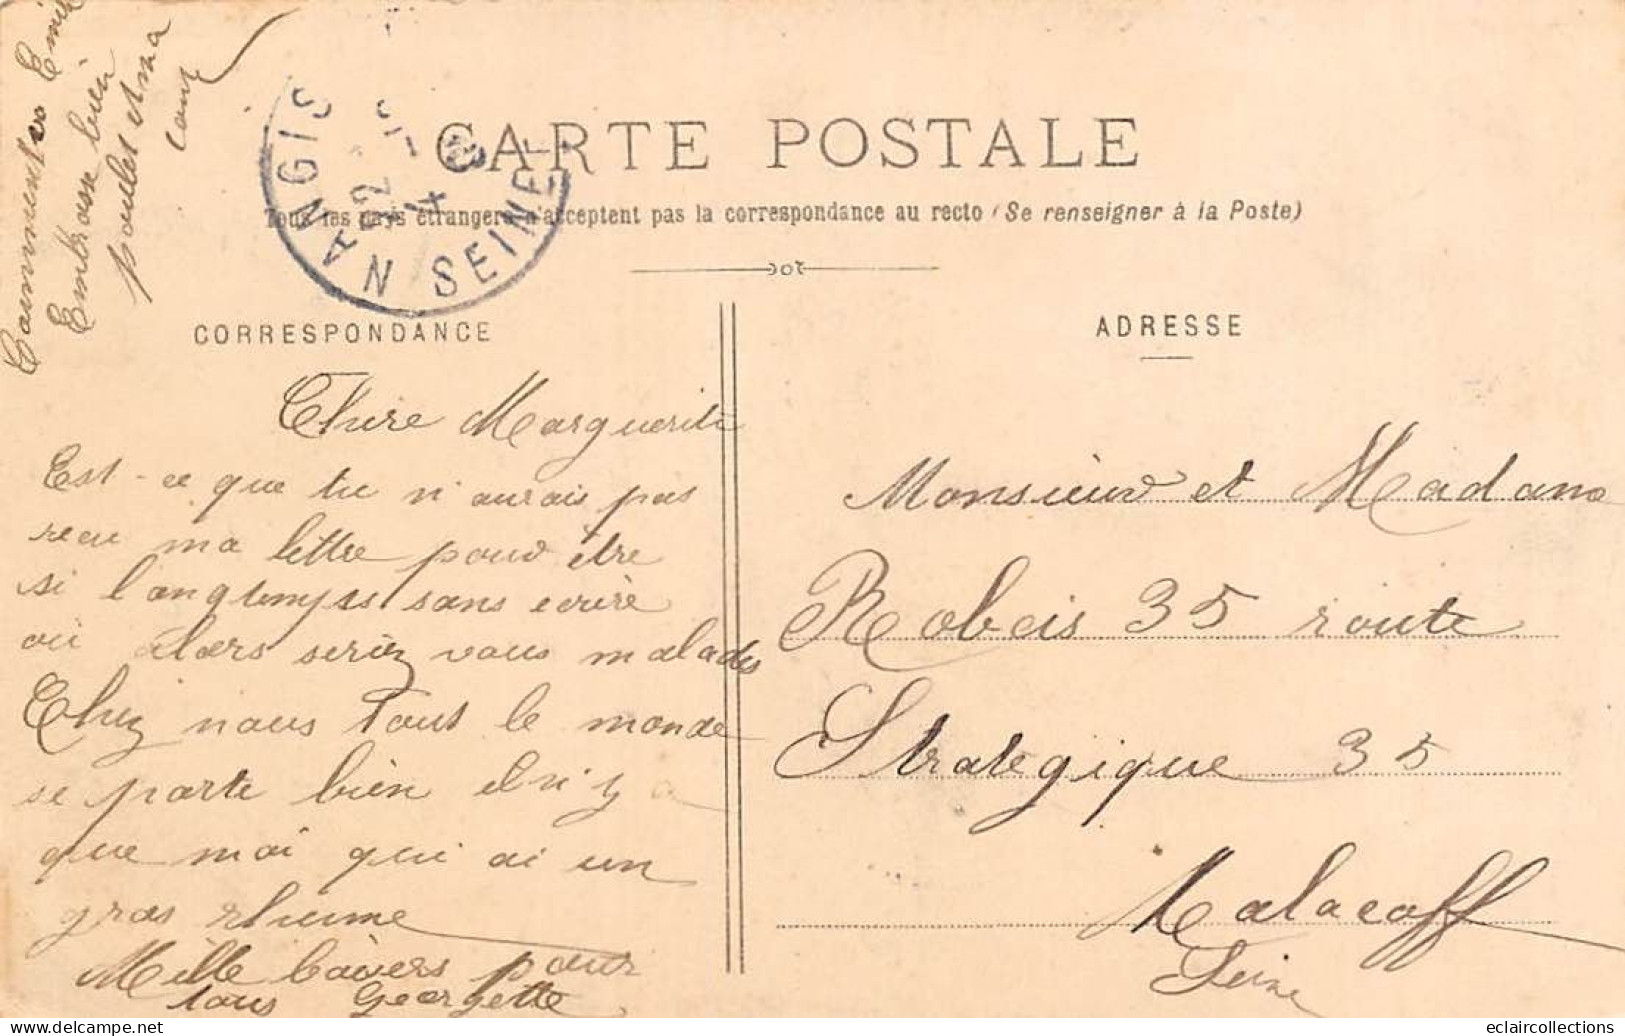 CARTE POSTALE
Tous les pays étrangers n'acceptent pas la correspondance au recto (Se renseigner à la Poste)
NANGIS
12
4
SEINE-ET-
CORRESPONDANCE
ADRESSE
Embrasse bien
poulet et ma
Chère Marguerite
Est-ce que tu n'aurais pas
recu ma lettre pour être
si longtemps sans ecrire
ou alors seriez vous malades
Chez nous Tout le monde
se porte bien il n'y a
que moi qui ai un
gros rhume
Mille baisers pour
tous Georgette
Monsieur et Madame
Robeis 35 route
Strategique 35
Malacoff
Seine
eclaircollections
delcampe.net